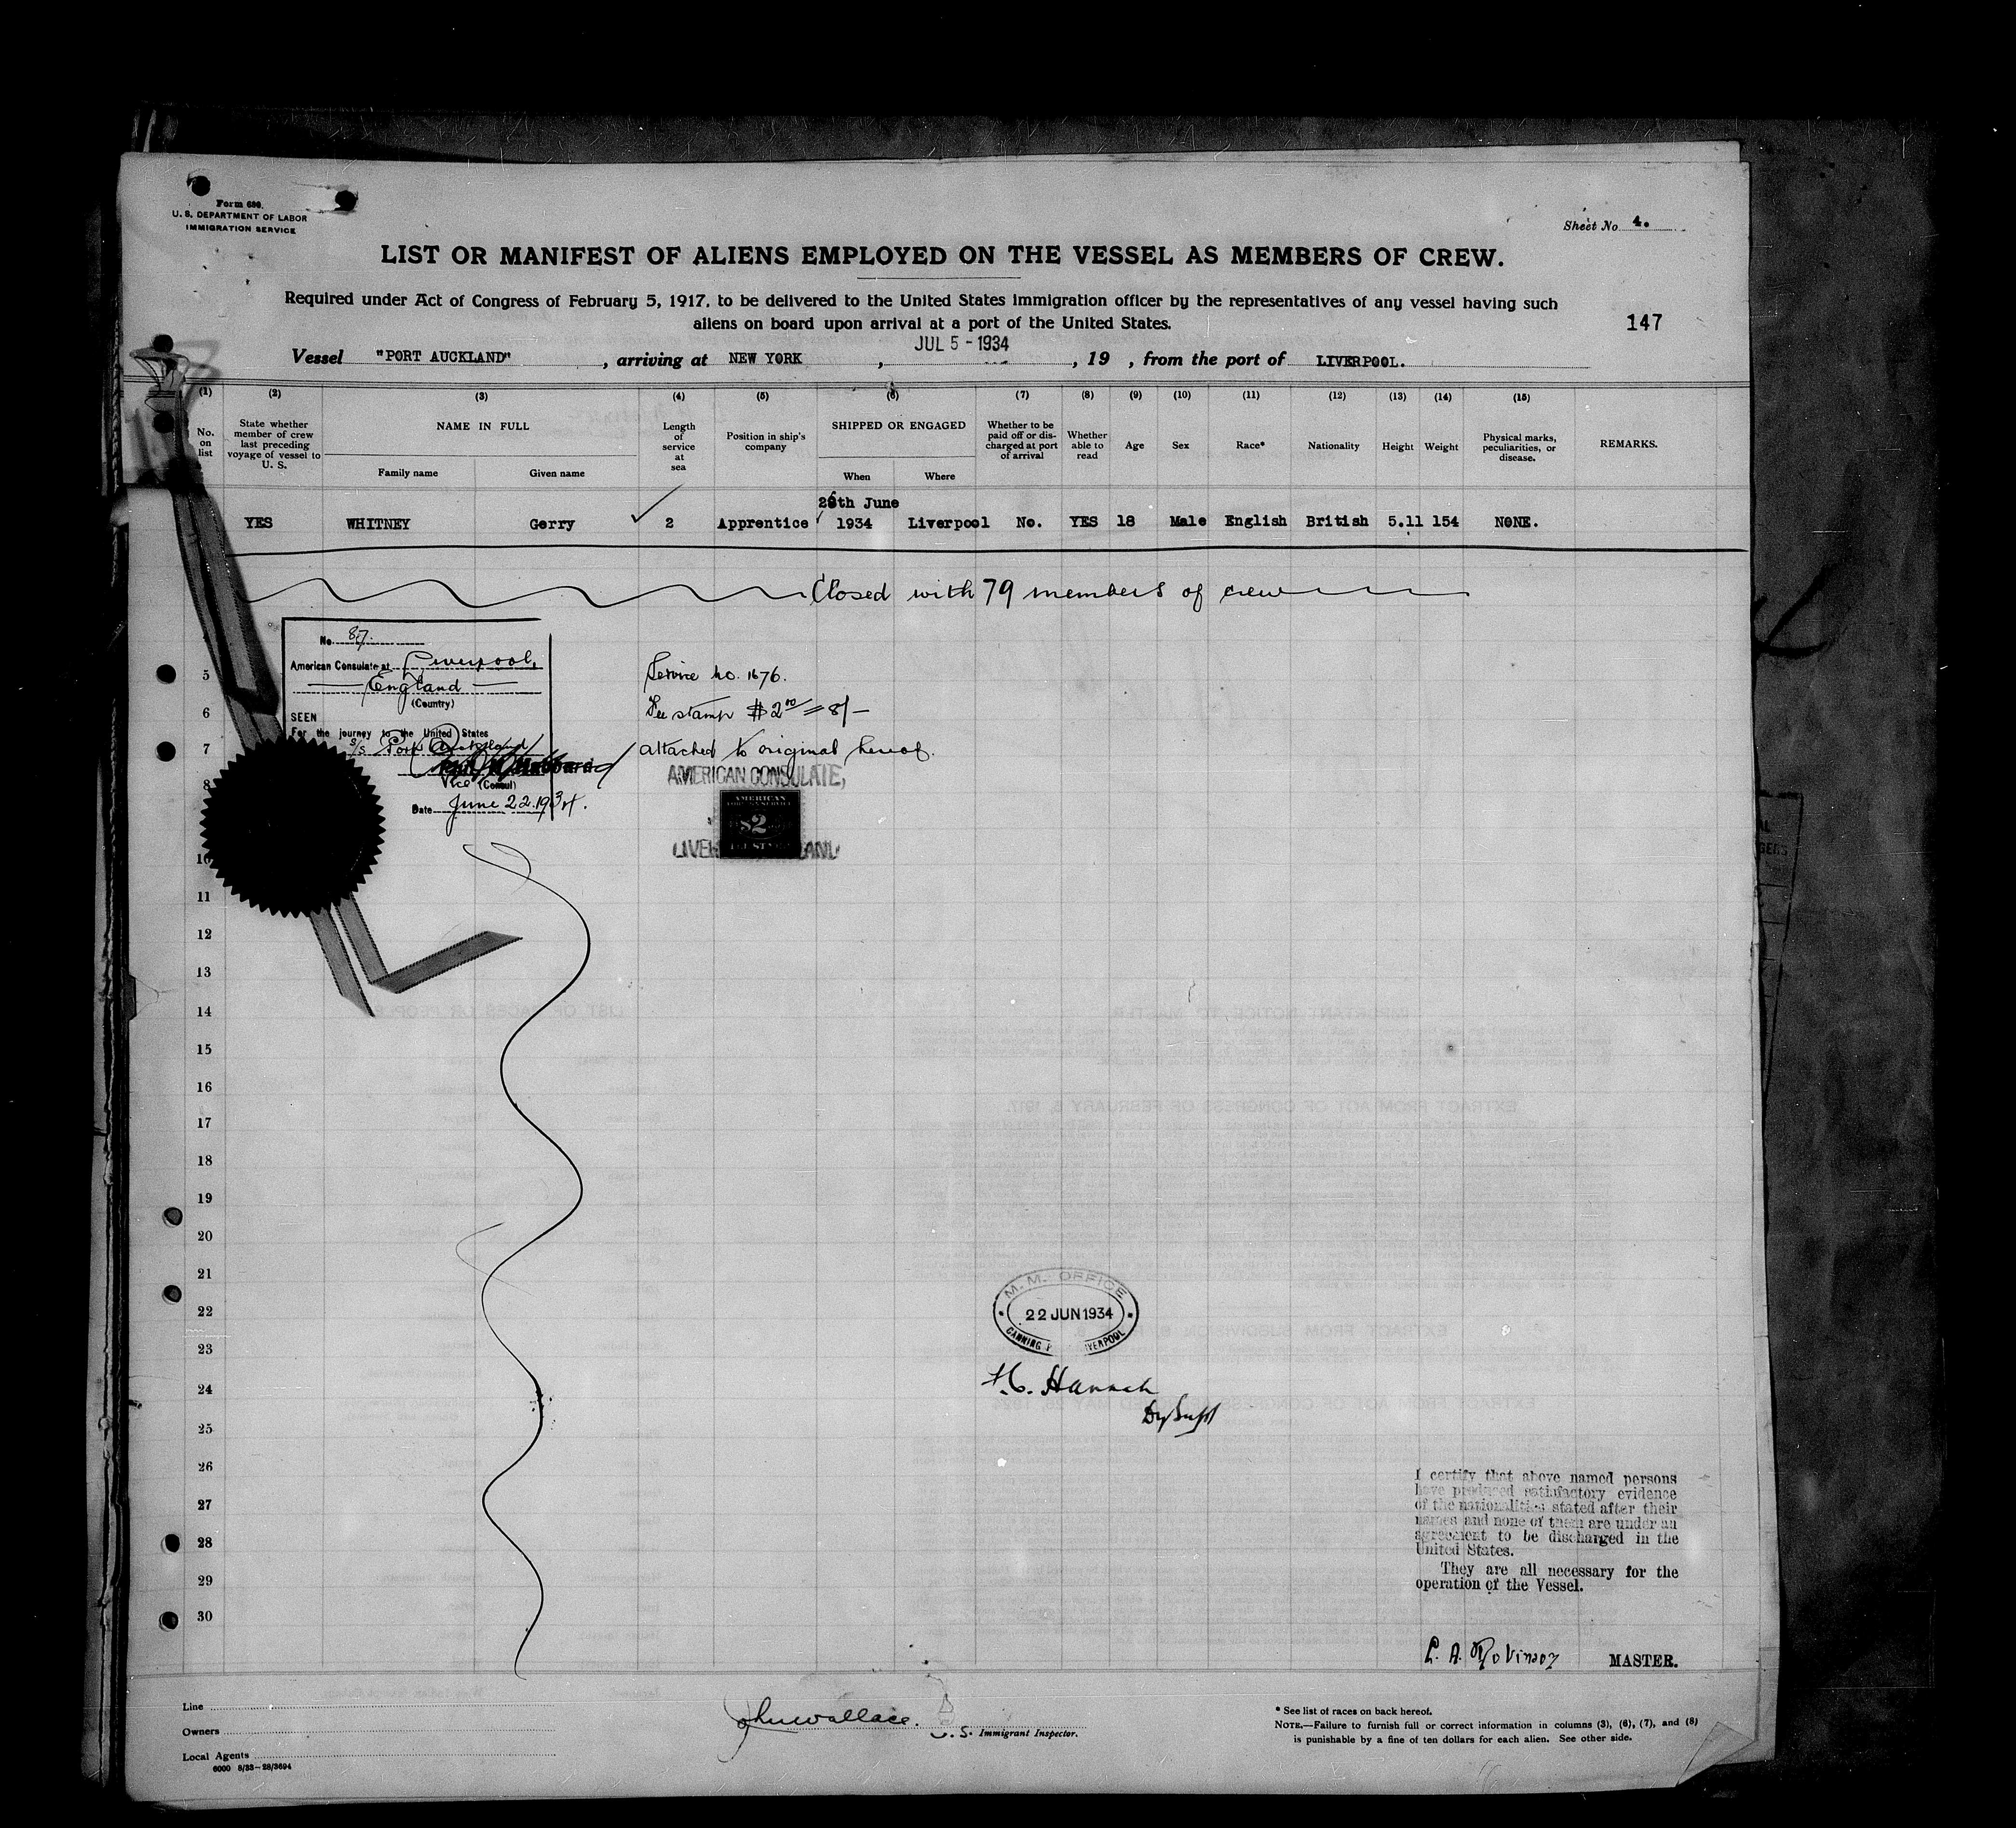 Form 680.
U. S. DEPARTMENT OF LABOR
IMMIGRATION SERVICE
Sheet No. 4.
LIST OR MANIFEST OF ALIENS EMPLOYED ON THE VESSEL AS MEMBERS OF CREW.
Required under Act of Congress of February 5, 1917, to be delivered to the United States immigration officer by the representatives of any vessel having such
aliens on board upon arrival at a port of the United States.
147
JUL 5 - 1934
Vessel "PORT AUCKLAND", arriving at NEW YORK, , 19 , from the port of LIVERPOOL.
(1) (2) (3) (4) (5) (6) (7) (8) (9) (10) (11) (12) (13) (14) (15)
No. on list
State whether member of crew last preceding voyage of vessel to U. S.
NAME IN FULL
Family name Given name
Length of service at sea
Position in ship's company
SHIPPED OR ENGAGED
When Where
Whether to be paid off or discharged at port of arrival
Whether able to read
Age
Sex
Race*
Nationality
Height
Weight
Physical marks, peculiarities, or disease.
REMARKS.
th June
YES WHITNEY Gerry 2 Apprentice 1934 Liverpool No. YES 18 Male English British 5.11 154 NONE.
Closed with 79 members of crew
No. 87.
American Consulate at Liverpool,
England
(Country)
SEEN
For the journey to the United States
S/S Port Auckland
Vice (Consul)
Date June 22.1934.
Service No. 1676.
Fee stamp $2.00 = 8/-
attached to original hereof.
AMERICAN CONSULATE,
AMERICAN
$2
5
6
7
8
10
11
12
13
14
15
16
17
18
19
20
21
22
23
24
25
26
27
28
29
30
M.M. OFFICE
22 JUN 1934
CANNING LIVERPOOL
H. Hannah
Dy Supt
I certify that above named persons
have produced satisfactory evidence
of the nationalities stated after their
names and none of them are under an
agreement to be discharged in the
United States.
They are all necessary for the
operation of the Vessel.
A. Robinson MASTER.
Line
Owners
Local Agents
6000 8/33-28/3694
Jhnwallace.
U. S. Immigrant Inspector.
* See list of races on back hereof.
NOTE.—Failure to furnish full or correct information in columns (3), (6), (7), and (8)
is punishable by a fine of ten dollars for each alien. See other side.